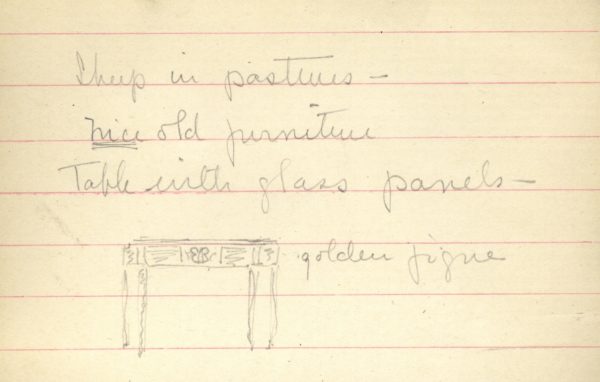 Sheep in pastures –
nice old furniture
Table with glass panels –
golden figure